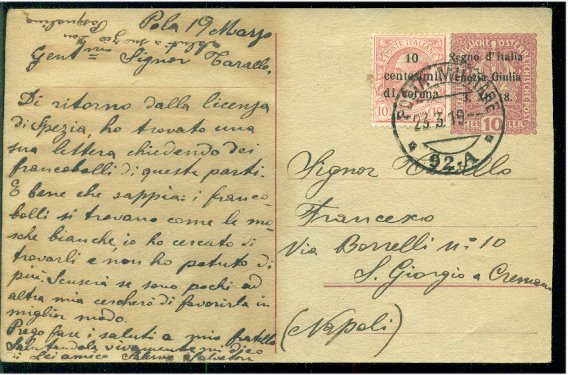 Pola 19 Marzo
Gent.mo Signor Tarallo,
Di ritorno dalla licenza
di Spezia, ho trovato una
sua lettera chiedendo dei
francobolli di queste parti.
È bene che sappia: i franco-
bolli si trovano come le mo-
sche bianche, io ho cercato di
trovarli e non ho potuto di
più. Scuserà se sono pochi ad
altra mia cercherò di favorirla in
miglior modo.
Prego fare i saluti a mio fratello
Salutandola vivamente mi dico
di Lei amico Salvatore
POSTE ITALIANE
10
centesimi
di corona
10 10
Regno d'Italia
Venezia Giulia
3. 18.
10
HELLER
POSTA MILITARE
23.3.19
92.A
Signor Tarallo
Francesco
Via Borrelli n° 10
S. Giorgio a Cremano
(Napoli)